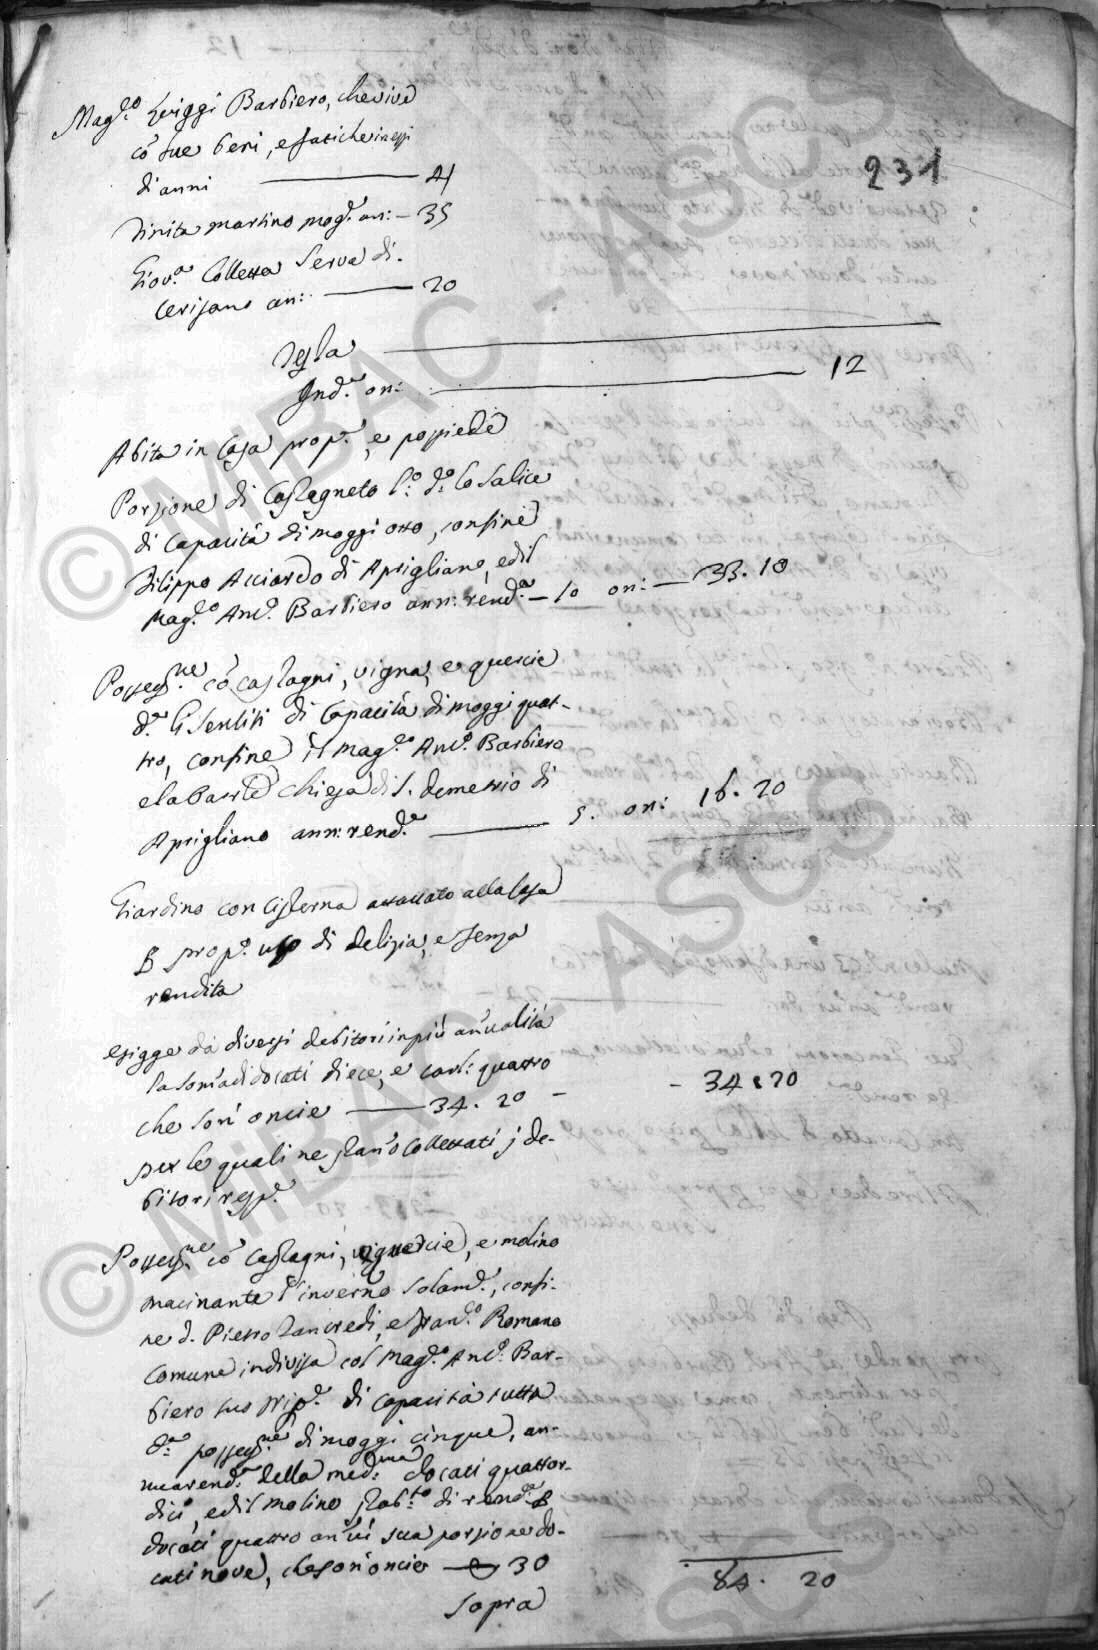 231
Mag.co Luiggi Barbiero, che vive
có sue beni, e fatiche in essi
di anni 41
Dinita Martino mog.e an: - 35
Giov.a Colletta Serva di
Cerisano an: 20
Testa
Ind.a on: 12
Abita in Casa prop.a, e possiede
Porzione di Castagneto l.o d.o lo Salice
di Capacitá di moggi otto, confine
Filippo Acciardo di Aprigliano, ed il
Mag.co Ant.o Barbiero ann: rend.a - 10 on: - 33.10
Possess.ne có castagni, vigna, e quercie
d.a li Sentiti di Capacitá di moggi quat-
tro, confine il Mag.co Ant.o Barbiero
e la Chiesa di S. Demetrio di
Aprigliano ann: rend.a 5. on: 16.20
Giardino con Cisterna attaccato alla Casa
p prop.o uso di delizia, e senza
rendita
Esigge da diversi debitori in piú an'ualitá
la som'a di docati diece, e carl: quattro
che son' oncie 34.20 - - 34.20
per le quali ne stan'o Collettati j de-
bitori resp.e
Possess.ne có castagni, quercie, e molino
macinante l'inverno solam.e, confi-
ne d. Pietro Tancredi, e Fran.co Romano
Comune indivisa col Mag.co Ant.o Bar-
biero suo di Capacitá tutta
d.a possess.ne di moggi cinque, an-
nua rend.a della med.ma docati quattor-
dici, ed il molino stab.to di rend.a p
docati quattro an'ui sua porzione do-
cati nove, che son' oncie 30
Sopra 84. 20
© MiBAC - ASCS
© MiBAC - ASCS